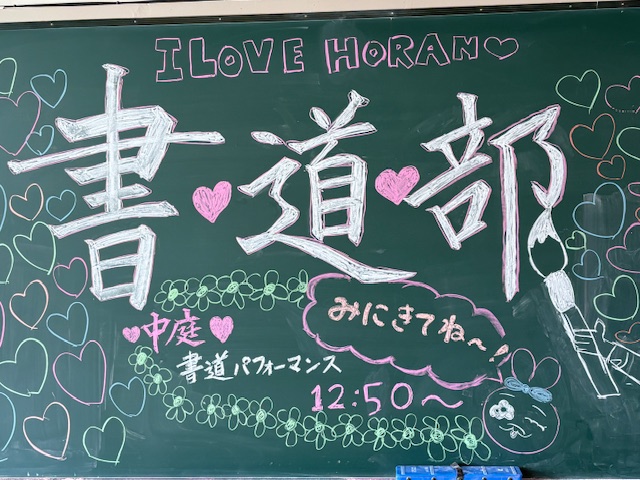 I LOVE HORAN♡
書♥道♥部
みにきてね〜!
♥中庭♥
書道パフォーマンス
12:50〜